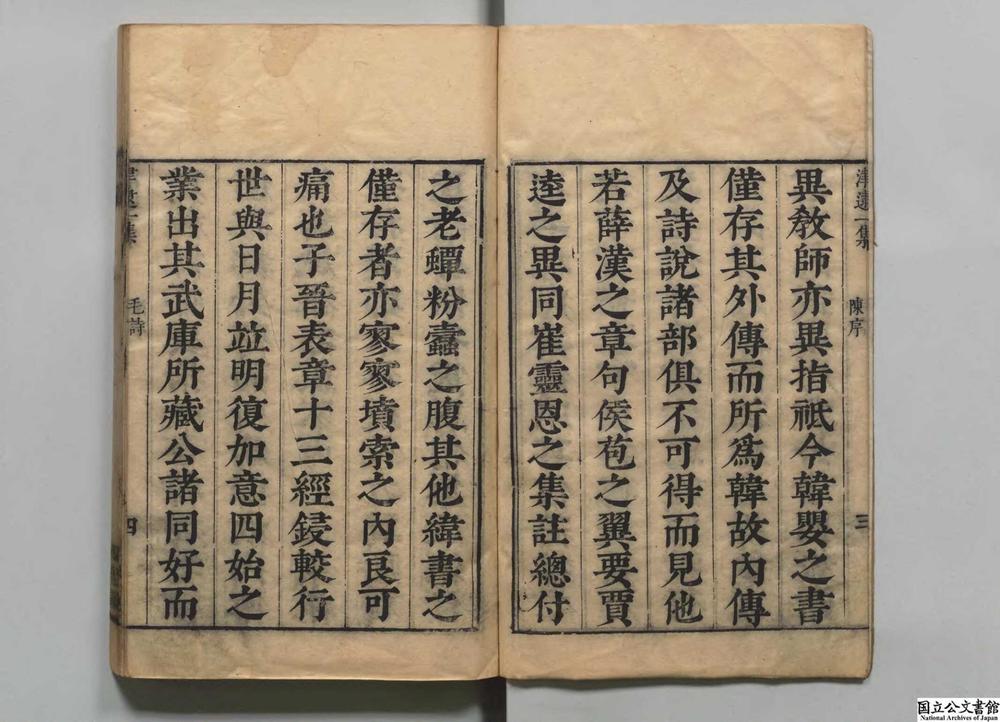 津逮一集 陳序 三
異教師亦異指祗今韓嬰之書
僅存其外傳而所爲韓故內傳
及詩說諸部俱不可得而見他
若薛漢之章句侯苞之翼要賈
逵之異同崔靈恩之集註總付
之老蟫粉蠹之腹其他緯書之
僅存者亦寥寥墳索之內良可
痛也子晉表章十三經鋟較行
世與日月竝明復加意四始之
業出其武庫所藏公諸同好而
津逮一集 毛詩 四
国立公文書館
National Archives of Japan